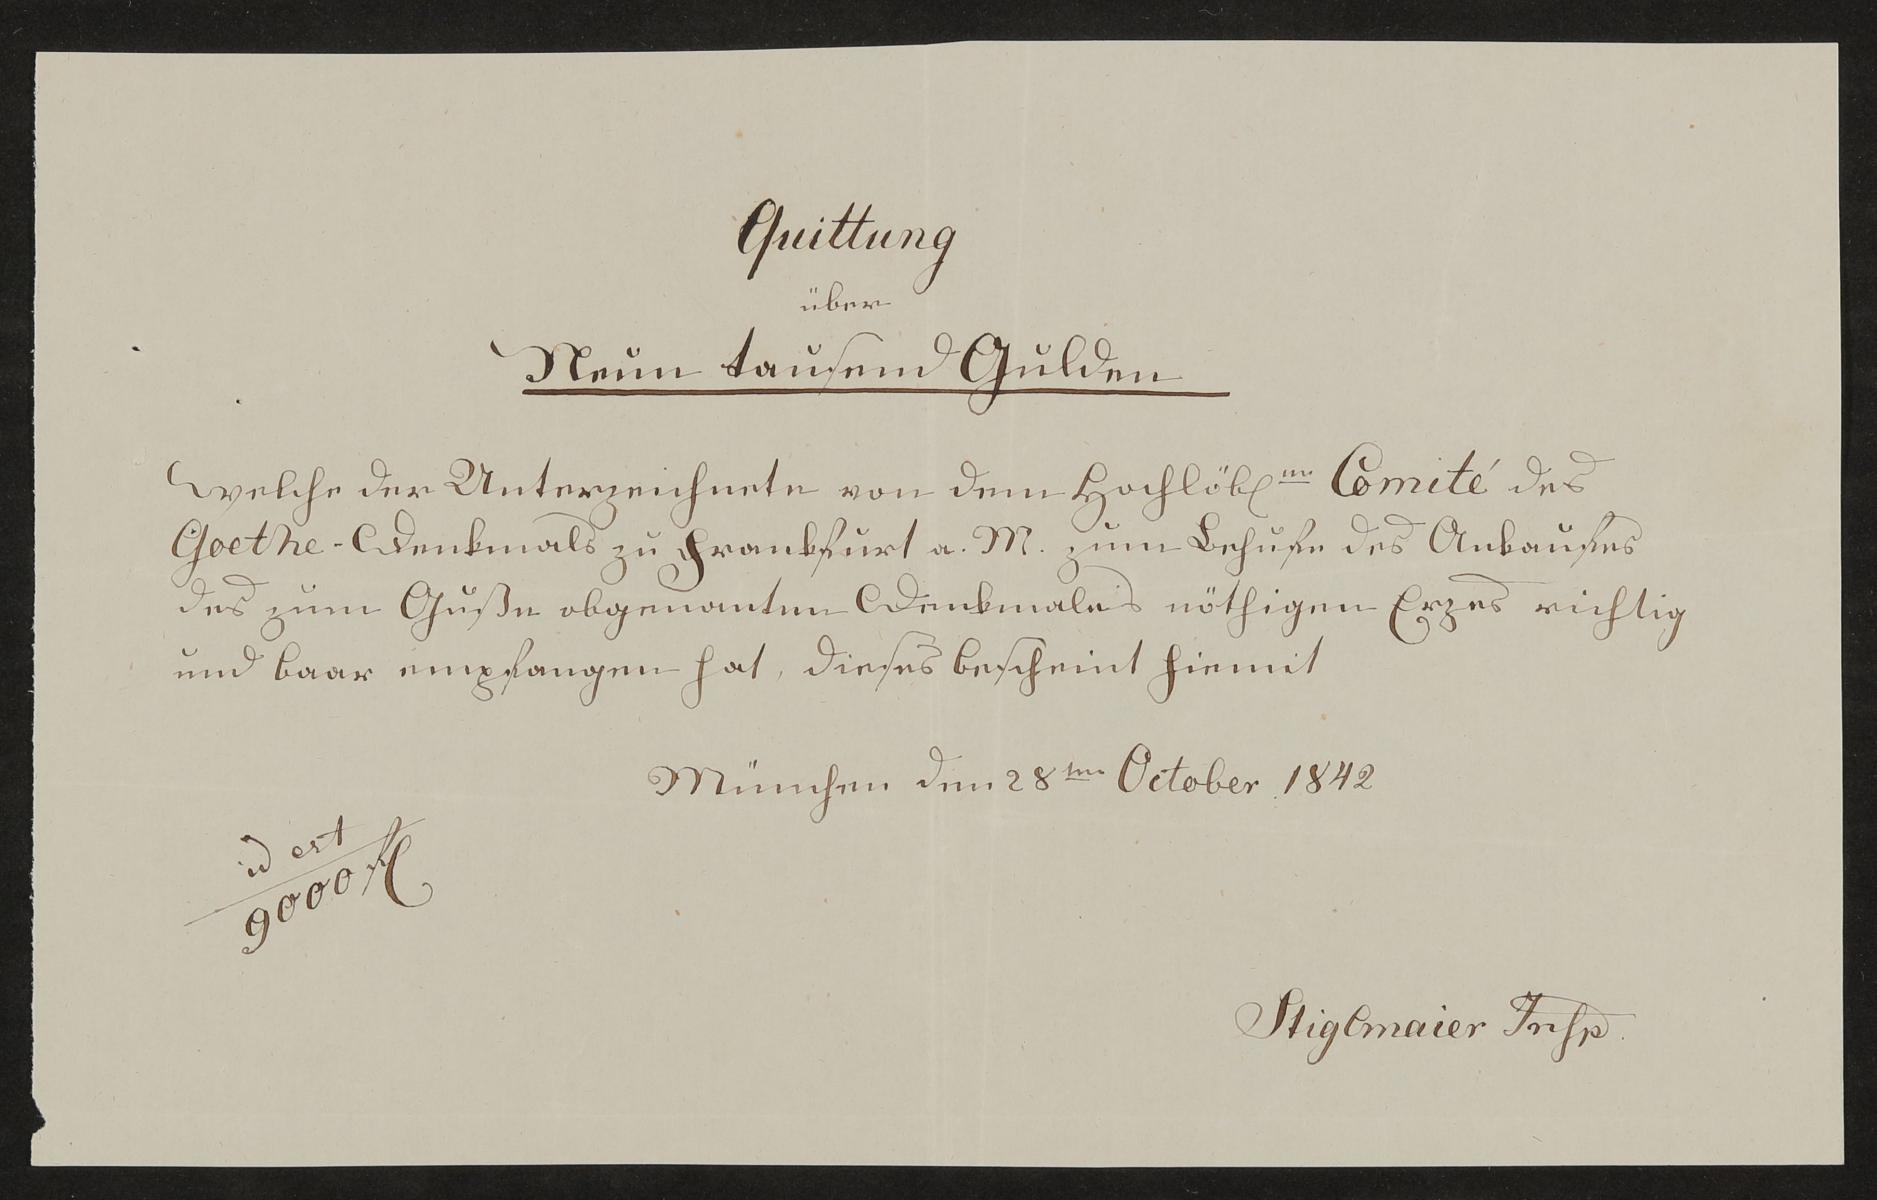 Quittung
über
Neun tausend Gulden
welche der Unterzeichnete von dem Hochlöbl.en Comité des
Goethe-Denkmals zu Frankfurt a. M. zum Behufe des Ankaufes
des zum Guße obgenanten Denkmales nöthigen Erzes richtig
und baar empfangen hat, dieses bescheint hiemit
München den 28ten October 1842
id est
9000 fl
Stiglmaier Insp.